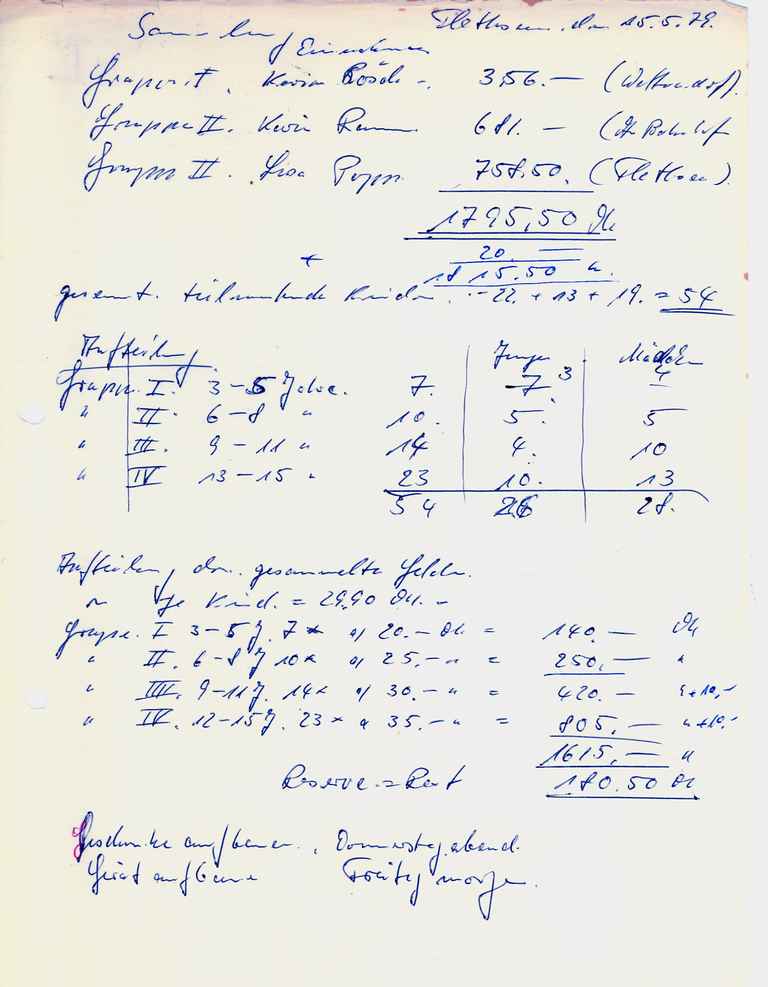 Flethsen, den 15.5.79.
Sammlung / Einnahmen
Gruppe I. Karin Rösch -. 356.— (Weltzendorf).
Gruppe II. Karin 681. — (Bahnhof
Gruppe II. Lisa Popp. 758.50. (Flethsen).
1795,50 DM
20. —
+ 1815.50 "
gesamt. teilnehmende Kinder. -22. + 13 + 19. = 54
Aufteilung Jungen Mädchen
Gruppe. I. 3-5 Jahre. 7. 7. 3 4
" II. 6-8 " 10. 5. 5
" III. 9-11 " 14 4. 10
" IV 13-15 " 23 10. 13
54 26 28.
Aufteilung der gesammelte Gelder.
Je Kind. = 29.90 DM. -
Gruppe. I 3-5 J. 7x a 20.- DM = 140.— DM
" II. 6-8 J 10x a 25.- " = 250.— "
" III. 9-11 J. 14x a 30.- " = 420. — " +10,-
" IV. 12-15 J. 23 x a 35.- " = 805. — " +10.-
1615,— "
Reserve = Rest 180.50 DM
Geschenke aufbauen., Donnerstag abend.
Gerät aufbauen Freitag morgen.